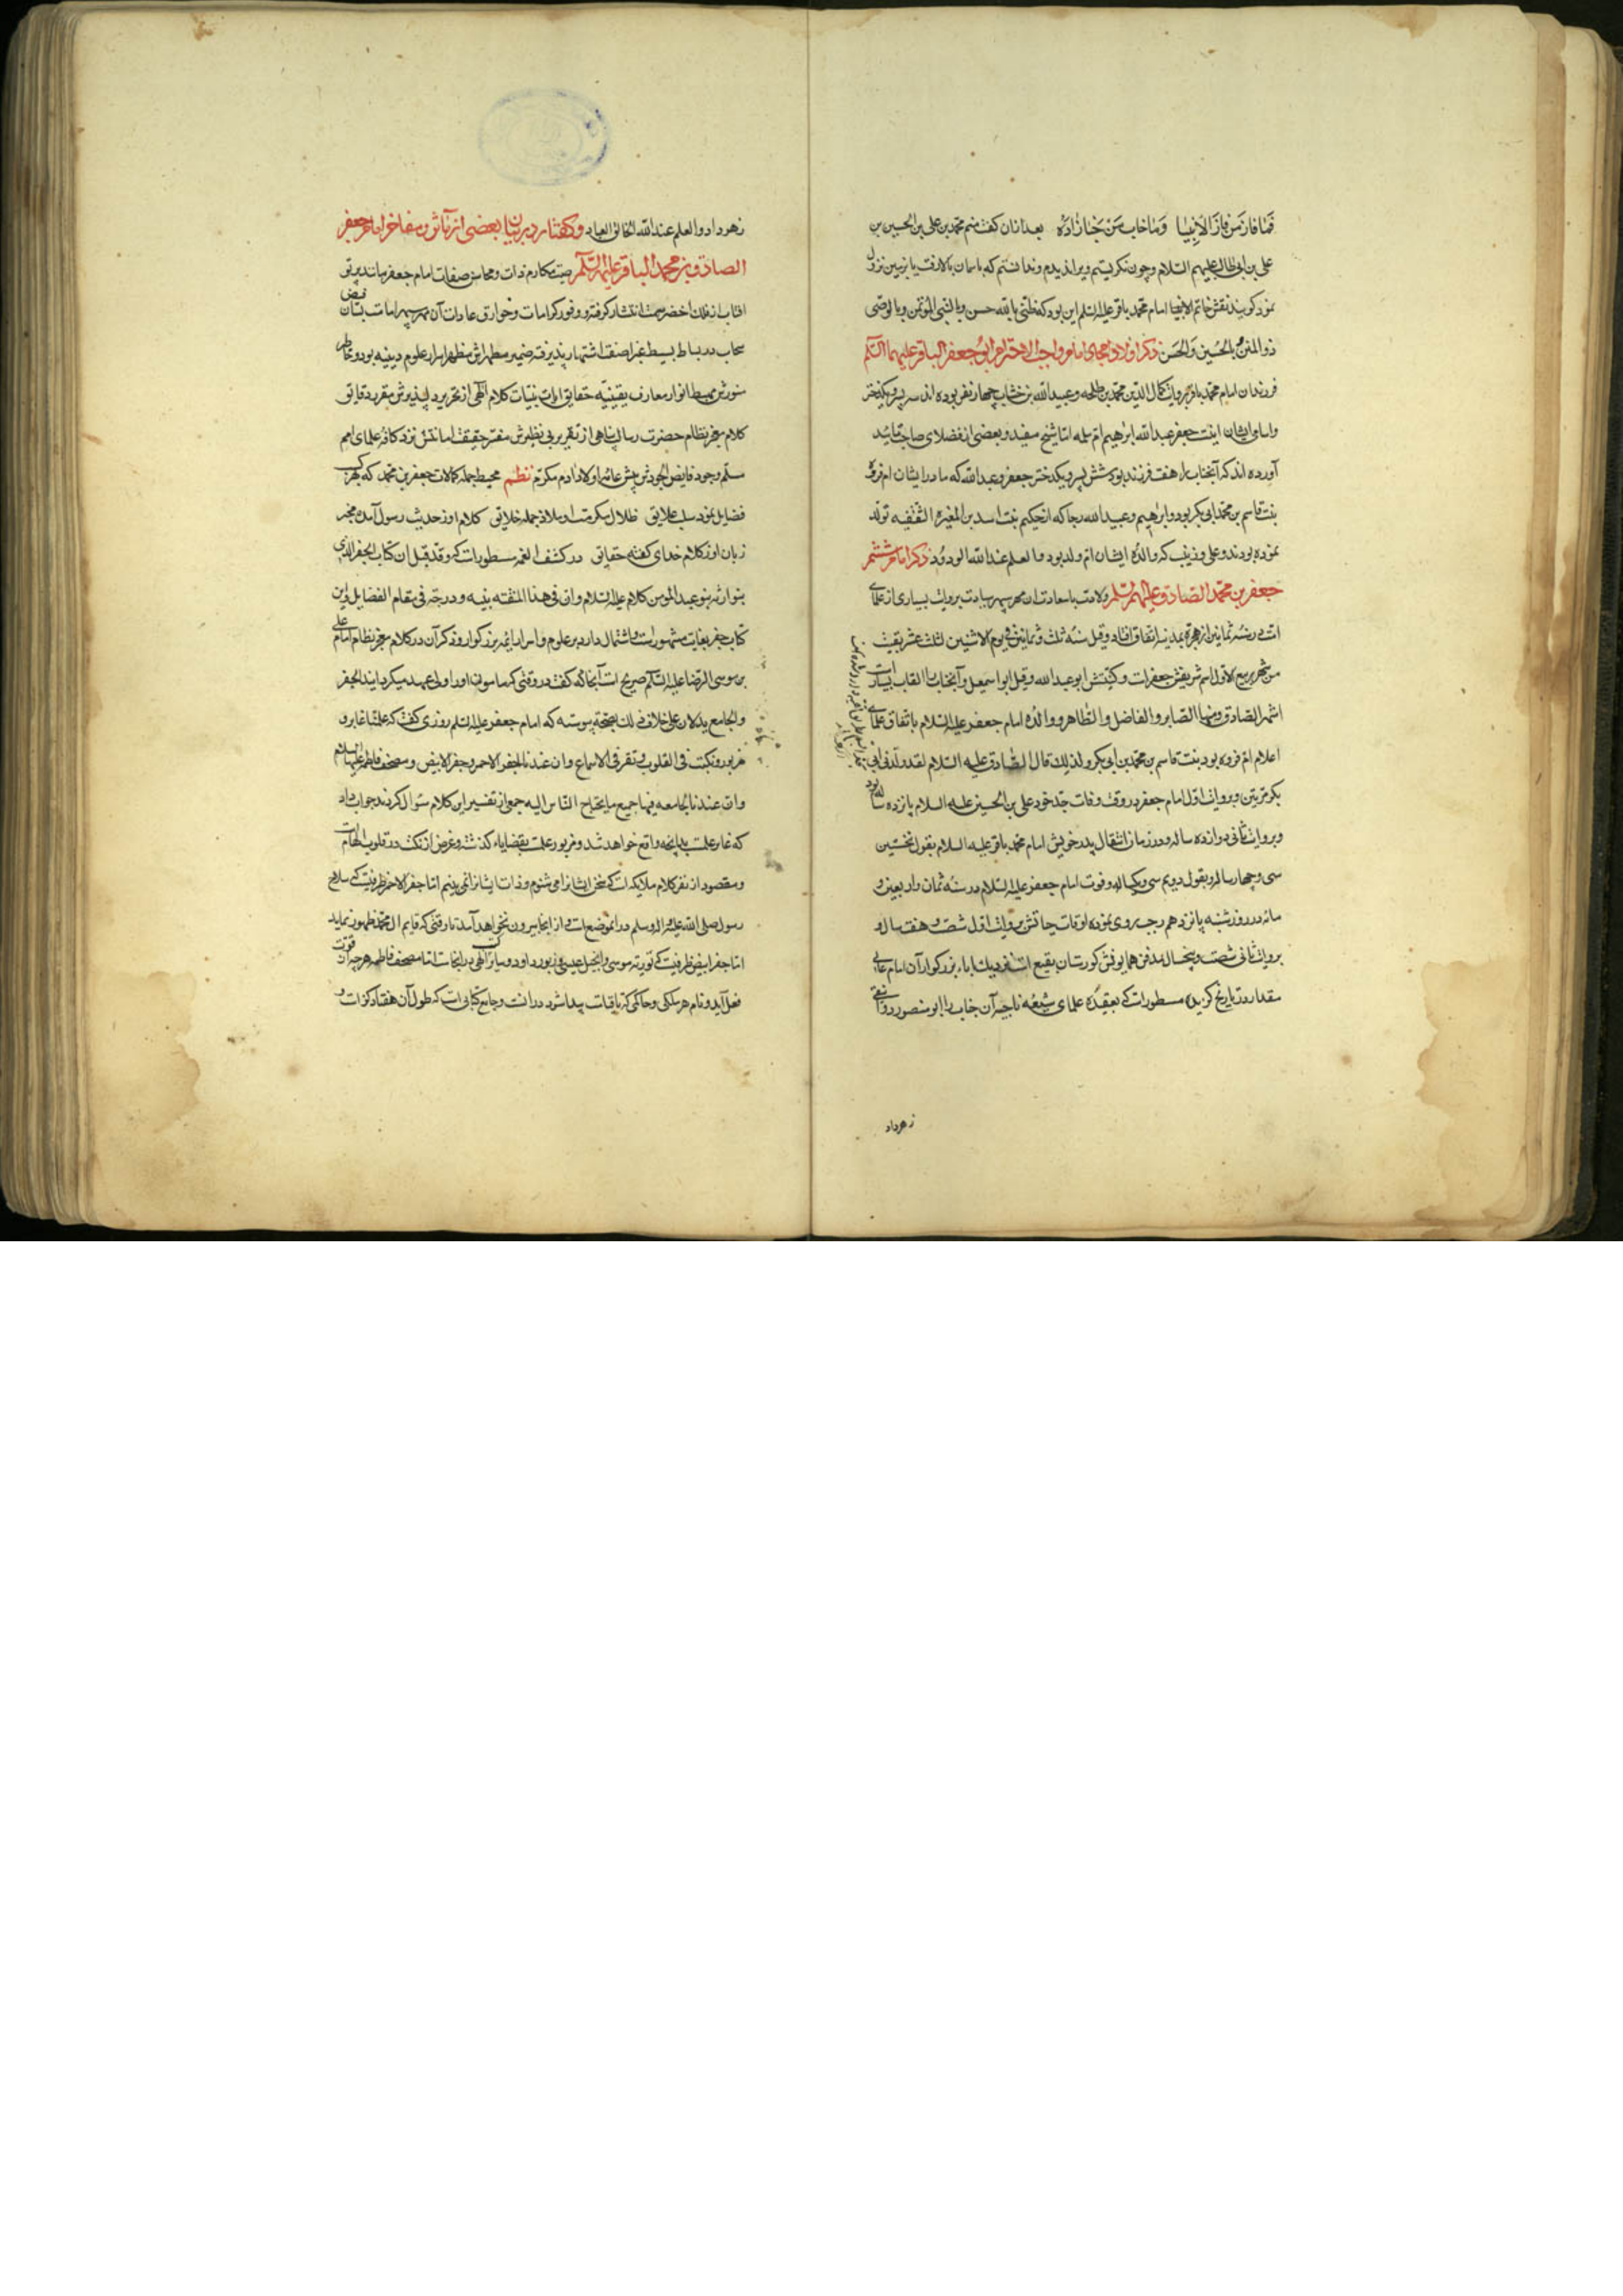 فما فاز من فاز الا بنا وما خاب من حبنا زاده بعد ازان گفت منم محمد بن علی بن الحسین بن
علی بن ابی طالب علیهم السلام و چون نگریستم ویرا ندیدم و ندانستم که باسمان بالا رفت یا بزمین نزول
نمود گویند نقش خاتم امام محمد باقر علیه السلم این بود که ظنی بالله حسن و بالنبی المؤتمن و بالوصی
ذو المنن و بالحسین والحسن ذکر اولاد امجاد امام واجب الاحترام ابو جعفر الباقر علیهما السلم
فرزندان امام محمد باقر بروایت کمال الدین محمد بن طلحه و عبد الله بن خشاب چهار نفر بوده اند سه پسر و یکدختر
و اسامی ایشان اینست جعفر عبد الله ابرهیم ام سلمه اما شیخ مفید و بعضی از فضلای صاحب تائید
آورده اند که آنجناب را هفت فرزند بود شش پسر و یکدختر جعفر و عبد الله که مادر ایشان ام فروه
بنت قاسم بن محمد ابی بکر بود و ابرهیم و عبید الله رجا که از حکیم بنت اسد بن المغیره الثقفیه تولد
نموده بودند و علی و زینب که والده ایشان ام ولد بود والعلم عند الله الودود ذکر امام ششم
جعفر بن محمد الصادق علیهم السلم ولادت باسعادت ان مهر سپهر سیادت بروایت بسیاری از علمای
امت در سنه ثمانین از هجره بمدینه اتفاق افتاد و قیل سنه ثلث و ثمانین فی یوم الاثنین لثلث عشر بقیت
من شهر ربیع الاول اسم شریفش جعفر است و کنیتش ابو عبد الله و قیل ابو اسمعیل و آنجناب را القاب بسیار است
اشهر الصادق و منها الصابر و الفاضل و الطاهر و والده امام جعفر علیه السلام باتفاق علمای
اعلام ام فروه بود بنت قاسم بن محمد بن ابی بکر و لذلک قال الصادق علیه السلام لقد ولدنی ابی
بکر مرتین و بروایت اول امام جعفر در وقت وفات جد خود علی بن الحسین علیه السلام پانزده ساله بود
و بروایت ثانی دوازده ساله و در زمان انتقال پدر خویش امام محمد باقر علیه السلام بقول نخستین
سی و چهار ساله و بقول دویم سی و یکساله و فوت امام جعفر علیه السلام در سنه ثمان و اربعین و
مائه در روز شنبه پانزدهم رجب روی نموده اوقات حیاتش بروایت اول شصت و هفت سال و
بروایت ثانی شصت و پنجسال مدفن همایونش گورستان بقیع است نزدیک باباء بزرگوار آن امام عالی
مقدار و در تاریخ گزیده مسطور است که بعقیده علمای شیعه ناجیه آن جناب را ابو منصور دوانقی
زهر داد
زهر داد والعلم عند الله الخالق العباد و گفتار در بیان بعضی از مآثر و مفاخر امام جعفر
الصادق بن محمد الباقر علیهم السلم صیت مکارم ذات و محاسن صفات امام جعفر مانند پرتو
افتاب از فلک اخضر سمت انتشار گرفته و وفور کرامات و خوارق عادات آن مهر سپهر امامت بسان فیض
سحاب در بساط بسیط غبرا صفت اشتهار پذیرفته ضمیر مطهرش مظهر اسرار علوم دینیه بود و خاطر
منورش مهبط انوار معارف یقینیه حقایق ایات بینات کلام الهی از تحریر دلپذیرش مقرر و دقایق
کلام معجز نظام حضرت رسالت پناهی از تقریر بی نظیرش مفسر حقیقت امامتش نزد کافه علمای امم
مسلم وجود فایض الجودش پیش عامه اولاد ادم مکرم نظم محیط جمله کمالات جعفر بن محمد که بهر کسب
فضایل نمود سلب علایق ظلال مکرمت او ملاذ جمله خلایق کلام او ز حدیث رسول آمده مخبر
زبان او ز کلام خدای گفته حقایق در کشف الغمه مسطور است که و قد قیل ان کتاب الجفر الذی
یتوارثه بنو عبد المومن کلام علیه السلام و ان فی هذا المنقبة سنیه و درجة فی مقام الفضایل و این
کتاب جفر بغایت مشهور است و اشتمال دارد بر علوم و اسرار ائمه بزرگوار و ذکر آن در کلام معجز نظام امام علی
بن موسی الرضا علیه السلم صریح است آنجا که گفت در وقتی که مامون او را ولی عهد میگردانید الجفر
والجامع یدلان علی خلاف ذلک بصحت پیوسته که امام جعفر علیه السلم روزی گفت که علمنا غابر و
مزبور و نکت فی القلوب و نقر فی الاسماع و ان عندنا الجفر الاحمر و جفر الابیض و مصحف فاطمه علیها السلام
وان عندنا الجامعه فیها جمیع ما یحتاج الناس الیه جمعی از تفسیر این کلام سؤال کردند جواب داد
که غابر علمست بدانچه واقع خواهد شد و مزبور علمست بقضایاء گذشته و غرض از نکت در قلوب الهام است
و مقصود از نقر کلام ملایکه است که سخن ایشانرا می شنوم و ذات ایشانرا نمی بینم اما جفر الاحمر ظرفیست که سلاح
رسول صلی الله علیه و اله و سلم در انموضع است و از انجا بیرون نخواهد آمد تا وقتی که قایم ال محمد ظهور نماید
اما جفر ابیض ظرفیست که توریة موسی و انجیل عیسی و زبور داود و سایر کتب الهی در انجاست اما مصحف فاطمه هر چه از قوت
بفعل آید و نام هر ملکی و حاکمی که تا قیامت پیدا شود در انست و جامع کتابی است که طول آن هفتاد گز است و